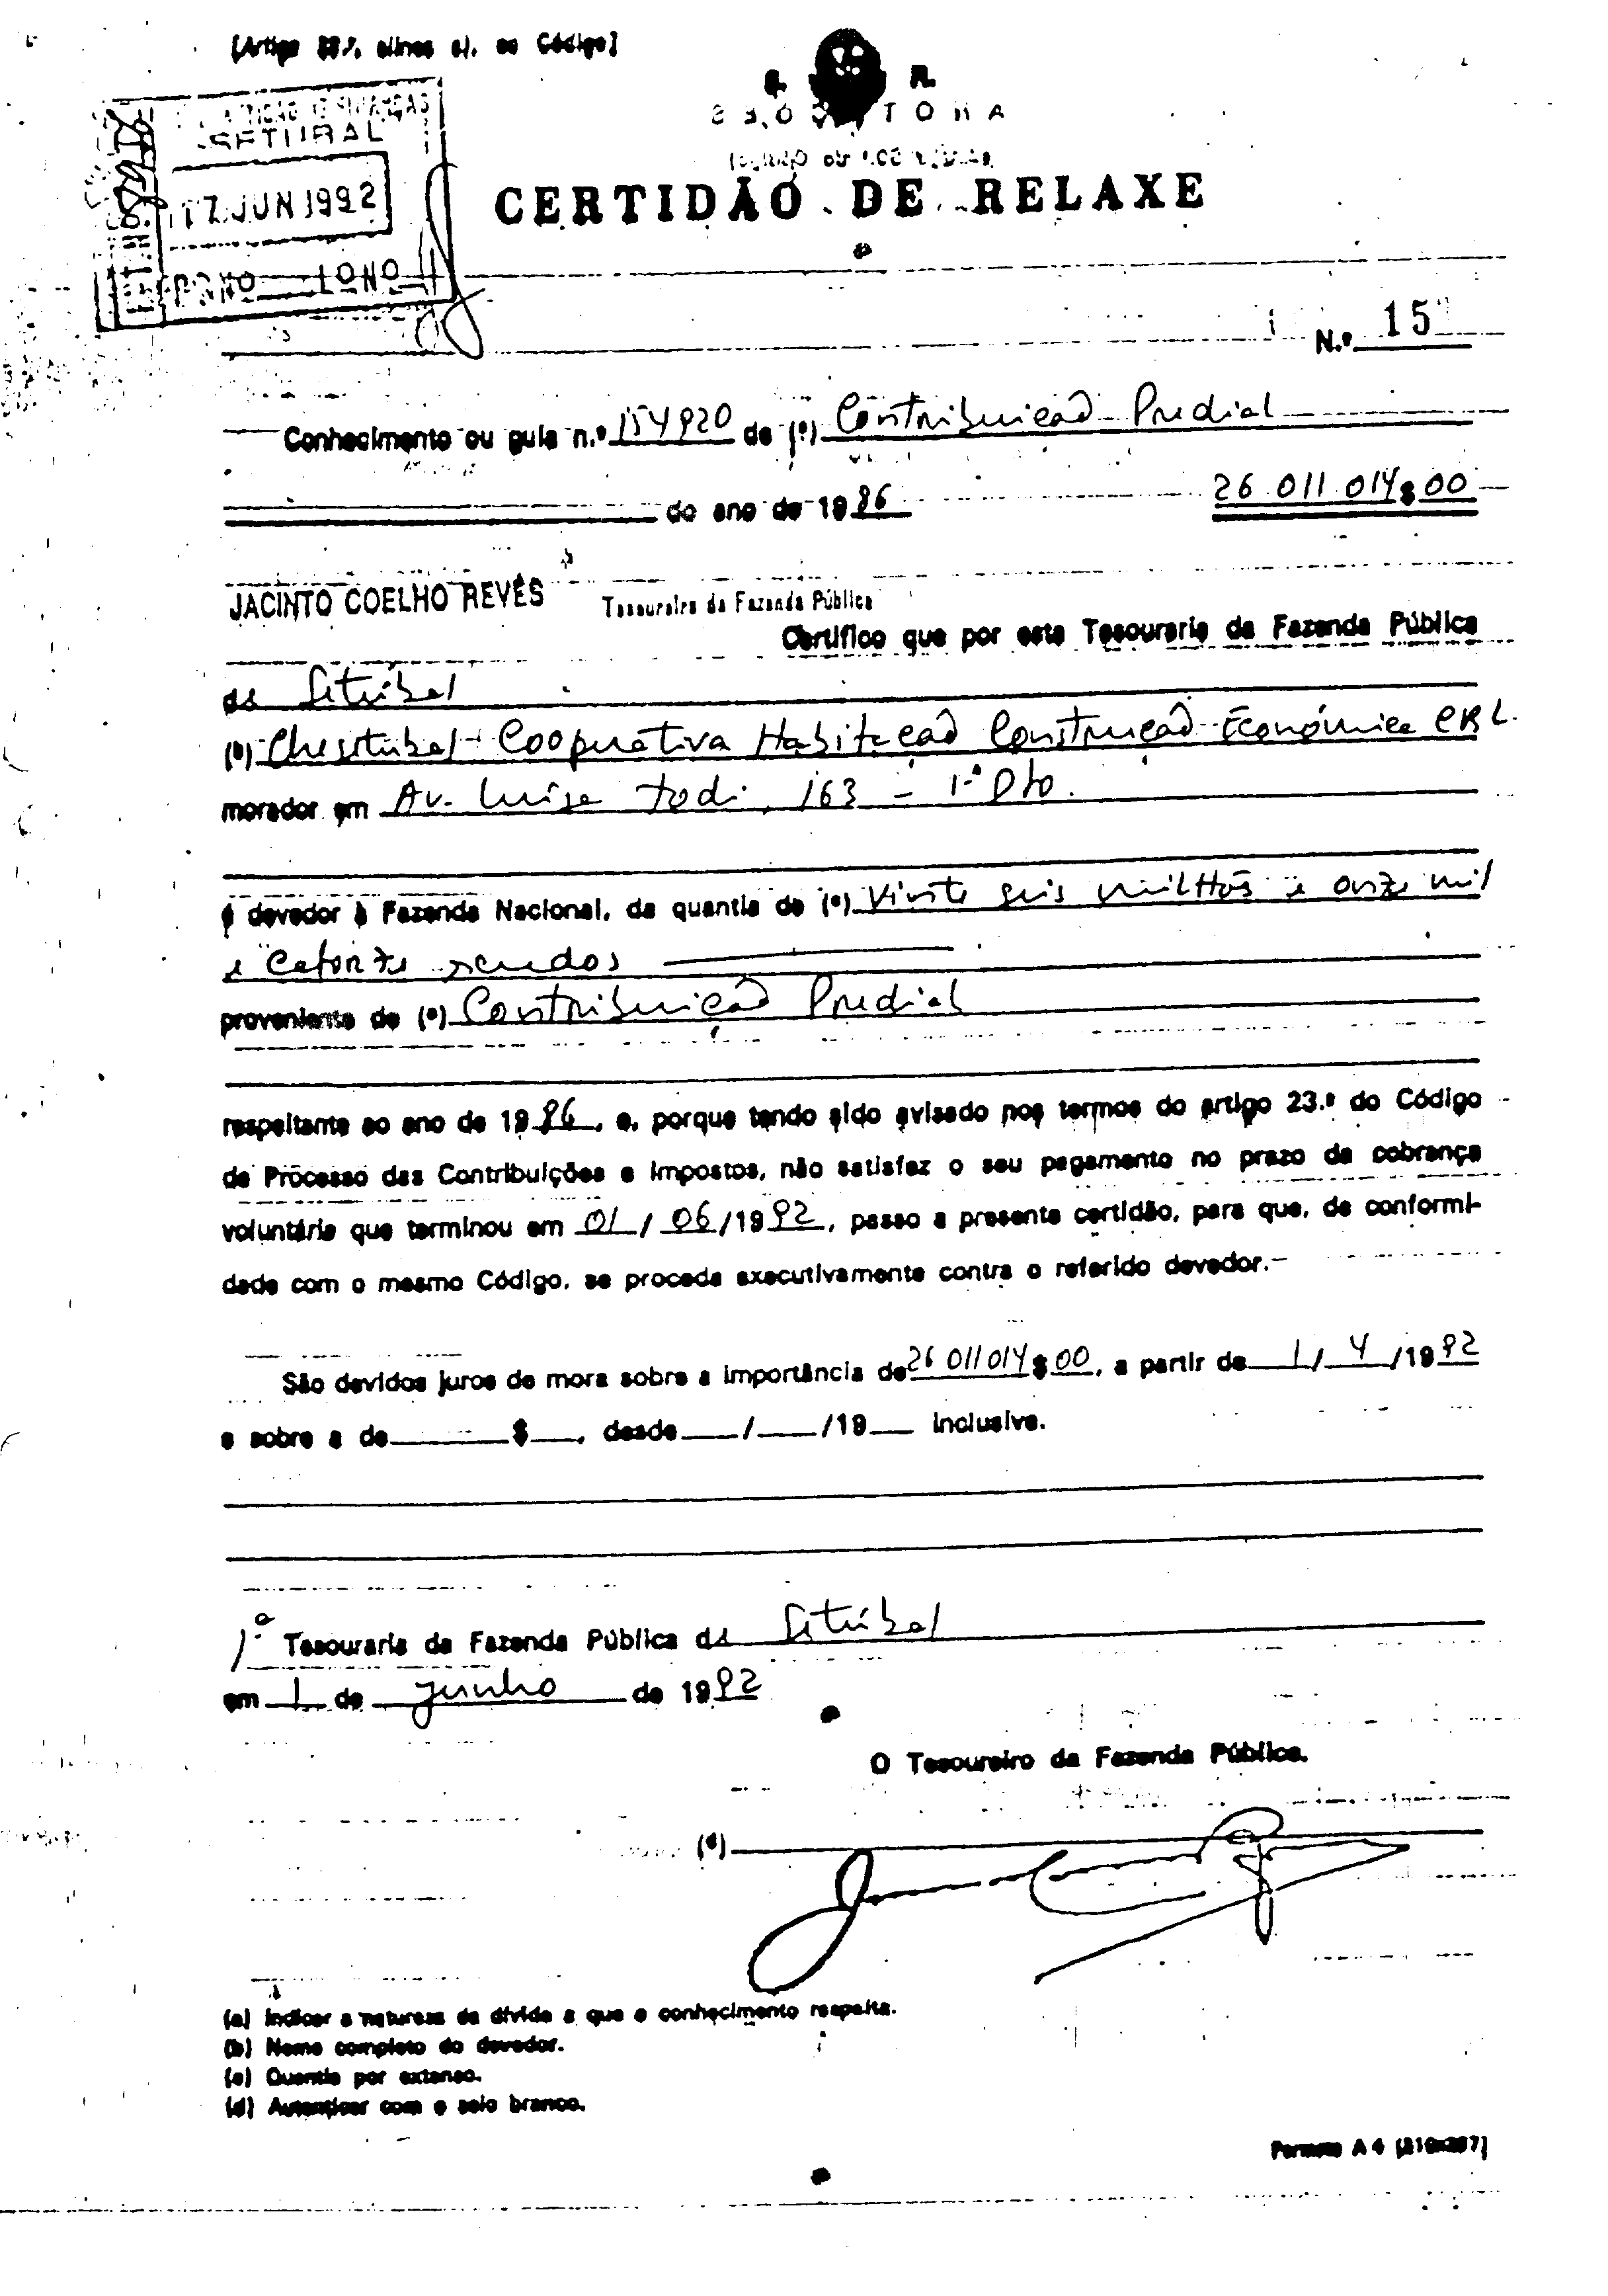 (Artigo 22.º, alínea a), do Código)
S. R.
SETUBAL
17 JUN 1992
CERTIDÃO DE RELAXE
N.º 15
Conhecimento ou guia n.º 154920 de (a) Contribuicaõ Predial
do ano de 1986 26 011 014$00
JACINTO COELHO REVÉS Tesoureiro da Fazenda Pública
Certifico que por esta Tesouraria da Fazenda Pública
de Setúbal
(b) Chesetubal - Cooperativa Habitacaõ Construcaõ Económica CRL.
morador em Av. Luisa Todi, 163 - 1.º Dto.
é devedor à Fazenda Nacional, da quantia de (c) Vinte seis milhõs e onze mil
e catorze escudos
proveniente de (a) Contribuicaõ Predial
respeitante ao ano de 1986, e, porque tendo sido avisado nos termos do artigo 23.º do Código
de Processo das Contribuições e Impostos, não satisfez o seu pagamento no prazo da cobrança
voluntária que terminou em 01/06/1992, passo a presente certidão, para que, de conformi-
dade com o mesmo Código, se proceda executivamente contra o referido devedor.
São devidos juros de mora sobre a importância de 26 011 014$00, a partir de 1/4/1992
e sobre a de $ , desde / /19 inclusive.
1.ª Tesouraria da Fazenda Pública de Setúbal
em 1 de junho de 1992
O Tesoureiro da Fazenda Pública,
(d)
(a) Indicar a natureza da dívida a que o conhecimento respeita.
(b) Nome completo do devedor.
(c) Quantia por extenso.
(d) Autenticar com o selo branco.
Formato A 4 (210x297)